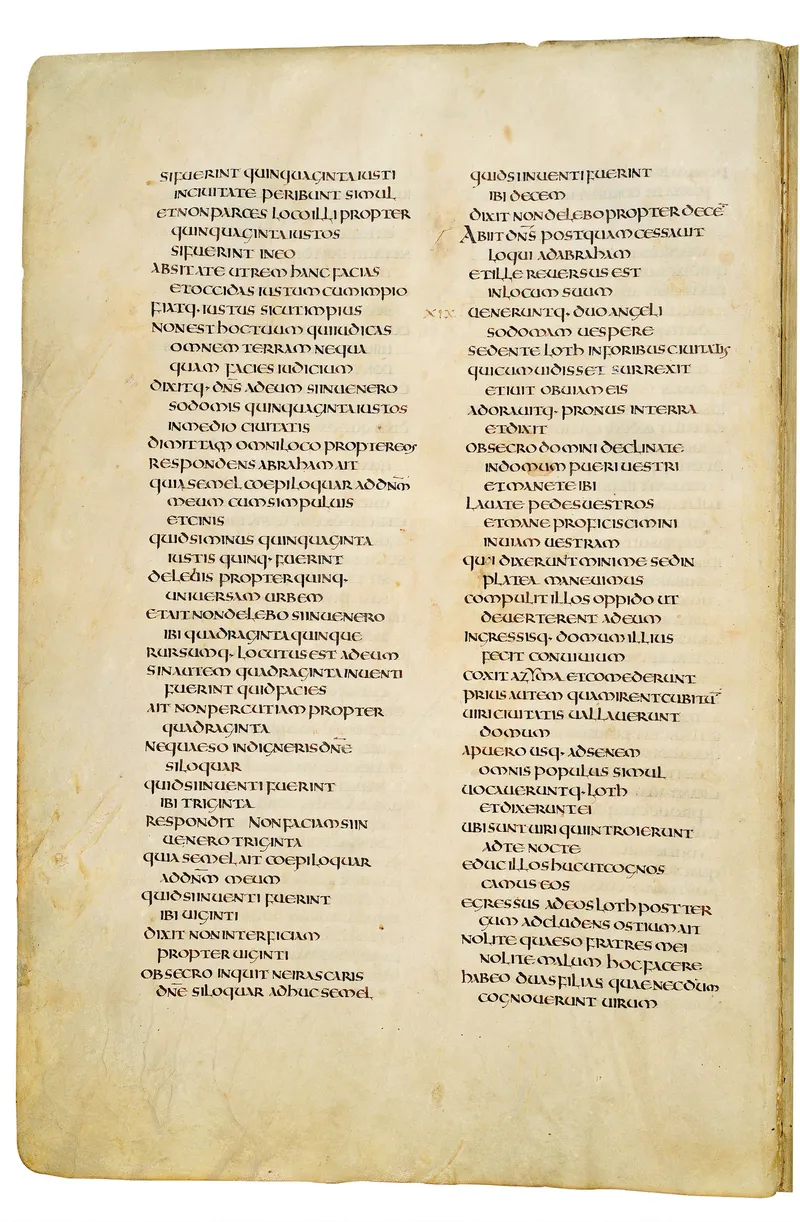 SIFUERINT QUINQUAGINTA IUSTI
INCIUITATE PERIBUNT SIMUL
ETNONPARCES LOCOILLI PROPTER
QUINQUAGINTA IUSTOS
SIFUERINT INEO
ABSIT ATE UTREM HANC FACIAS
ETOCCIDAS IUSTUM CUMIMPIO
FIATQ· IUSTUS SICUTIMPIUS
NONEST HOCTUUM QUIIUDICAS
OMNEM TERRAM NEQUA
QUAM FACIES IUDICIUM
DIXITQ· DN̅S ADEUM SIINUENERO
SODOMIS QUINQUAGINTA IUSTOS
INMEDIO CIUITATIS
DIMITTAM OMNILOCO PROPTEREOS
RESPONDENS ABRAHAM AIT
QUIA SEMEL COEPI LOQUAR ADDN̅M
MEUM CUMSIMPULUIS
ETCINIS
QUIDSIMINUS QUINQUAGINTA
IUSTIS QUINQ· FUERINT
DELEBIS PROPTERQUINQ·
UNIUERSAM URBEM
ETAIT NONDELEBO SIINUENERO
IBI QUADRAGINTA QUINQUE
RURSUMQ· LOCUTUS EST ADEUM
SINAUTEM QUADRAGINTA INUENTI
FUERINT QUIDFACIES
AIT NONPERCUTIAM PROPTER
QUADRAGINTA
NEQUAESO INDIGNERIS DN̅E
SILOQUAR
QUIDSIINUENTI FUERINT
IBI TRIGINTA
RESPONDIT NONFACIAM SIIN
UENERO TRIGINTA
QUIA SEMEL AIT COEPI LOQUAR
ADDN̅M MEUM
QUIDSIINUENTI FUERINT
IBI UIGINTI
DIXIT NONINTERFICIAM
PROPTER UIGINTI
OBSECRO INQUIT NEIRASCARIS
DN̅E SILOQUAR ADHUCSEMEL
QUIDSIINUENTI FUERINT
IBI DECEM
DIXIT NONDELEBO PROPTER DECE̅
ABIIT DN̅S POSTQUAM CESSAUIT
LOQUI ADABRAHAM
ETILLE REUERSUS EST
INLOCUM SUUM
XIX UENERUNTQ· DUOANGELI
SODOMAM UESPERE
SEDENTE LOTH INFORIBUS CIUITATIS
QUICUM UIDISSET SURREXIT
ETIUIT OBUIAM EIS
ADORAUITQ· PRONUS INTERRA
ETDIXIT
OBSECRO DOMINI DECLINATE
INDOMUM PUERI UESTRI
ETMANETE IBI
LAUATE PEDES UESTROS
ETMANE PROFICISCIMINI
INUIAM UESTRAM
QUI DIXERUNT MINIME SEDIN
PLATEA MANEUIMUS
COMPULIT ILLOS OPPIDO UT
DEUERTERENT ADEUM
INGRESSISQ· DOMUM ILLIUS
FECIT CONUIUIUM
COXIT AZYMA ETCOMEDERUNT
PRIUS AUTEM QUAMIRENT CUBITU̅
UIRI CIUITATIS UALLAUERUNT
DOMUM
APUERO USQ· ADSENEM
OMNIS POPULUS SIMUL
UOCAUERUNTQ· LOTH
ETDIXERUNT EI
UBI SUNT UIRI QUIINTROIERUNT
ADTE NOCTE
EDUC ILLOS HUC UTCOGNOS
CAMUS EOS
EGRESSUS ADEOS LOTH POSTTER
GUM ADCLUDENS OSTIUM AIT
NOLITE QUAESO FRATRES MEI
NOLITE MALUM HOC FACERE
HABEO DUAS FILIAS QUAENECDUM
COGNOUERUNT UIRUM